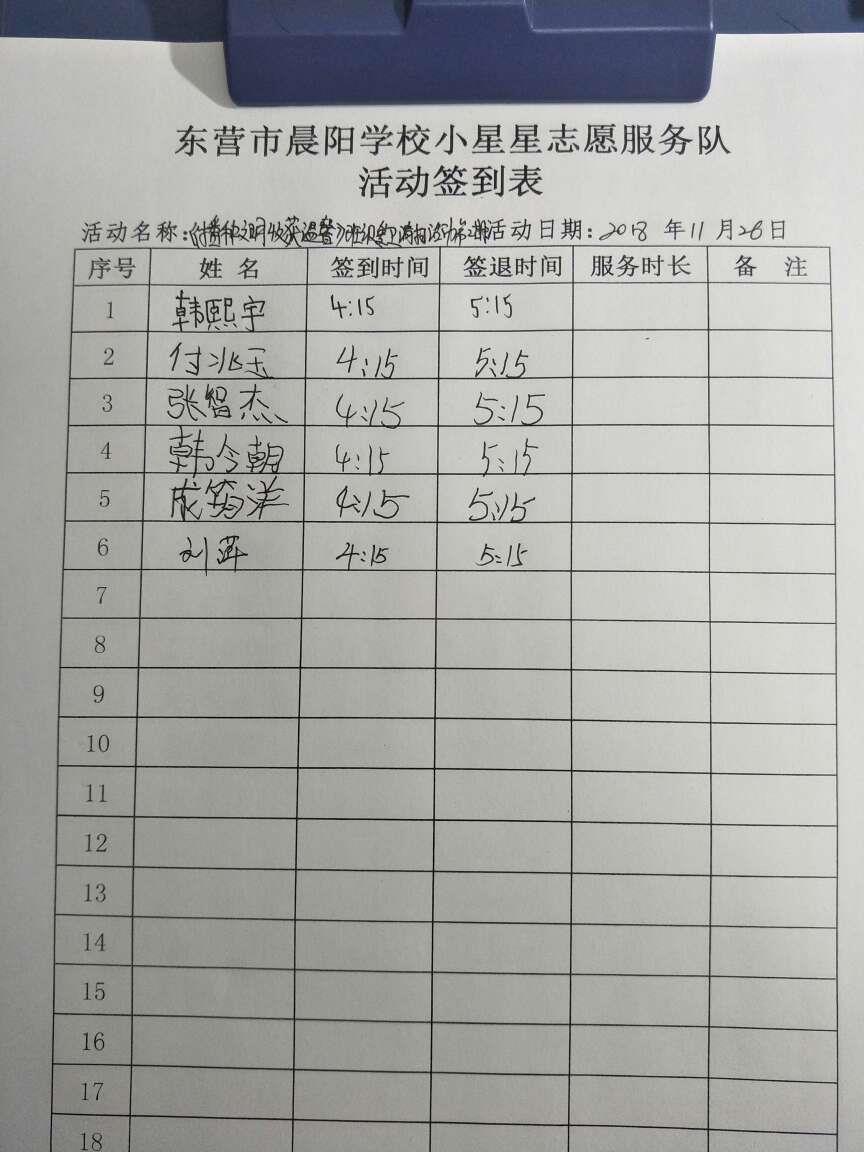 东营市晨阳学校小星星志愿服务队
活动签到表
活动名称:《播种文明收获温馨》 活动日期:2018年11月26日
序号 姓名 签到时间 签退时间 服务时长 备注
1 韩熙宇 4:15 5:15
2 付兆玉 4:15 5:15
3 张智杰 4:15 5:15
4 韩今朝 4:15 5:15
5 成筠洋 4:15 5:15
6 刘萍 4:15 5:15
7
8
9
10
11
12
13
14
15
16
17
18